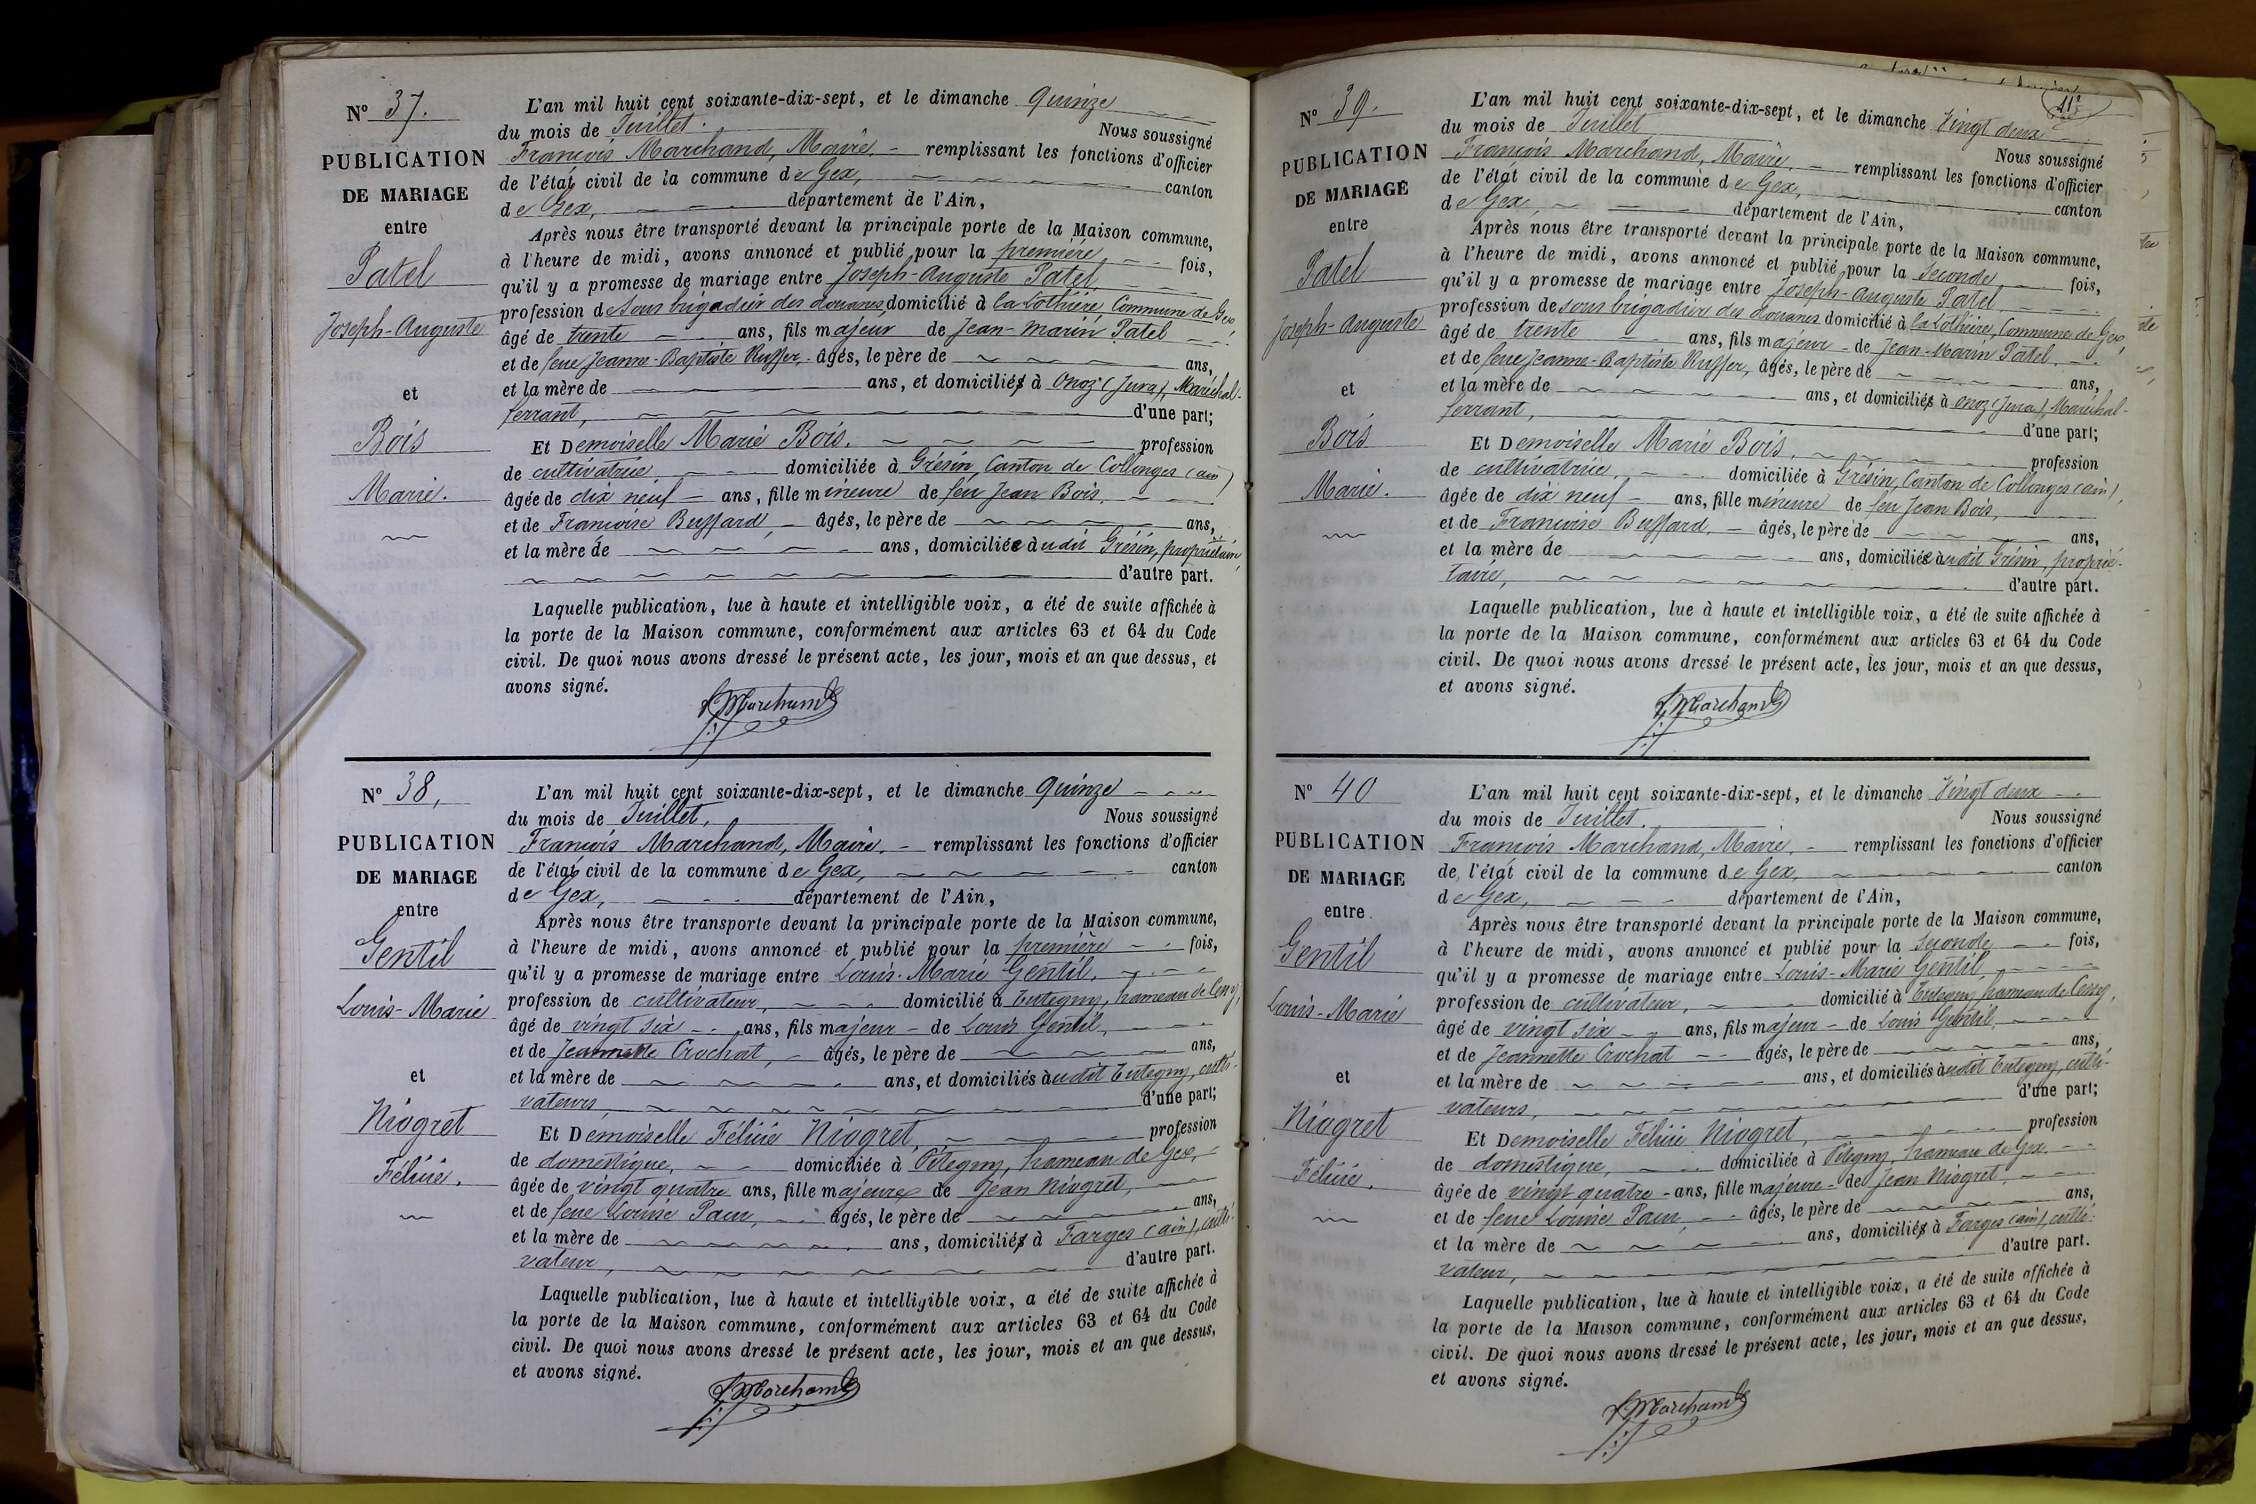 N° 37.
PUBLICATION
DE MARIAGE
entre
Patel
Joseph-Auguste
et
Bois
Marie.
L'an mil huit cent soixante-dix-sept, et le dimanche quinze
du mois de Juillet. Nous soussigné
François Marchand, Maire, remplissant les fonctions d'officier
de l'état civil de la commune de Gex, canton
de Gex, département de l'Ain,
Après nous être transporté devant la principale porte de la Maison commune,
à l'heure de midi, avons annoncé et publié pour la première fois,
qu'il y a promesse de mariage entre Joseph-Auguste Patel,
profession de sous brigadier des douanes, domicilié à la Lothière, Commune de Gex,
âgé de trente ans, fils majeur de Jean-Marin Patel
et de feue Jeanne-Baptiste Ruffer, âgés, le père de ans,
et la mère de ans, et domiciliés à Onoz (Jura), Maréchal-
ferrant, d'une part;
Et Demoiselle Marie Bois, profession
de cultivatrice, domiciliée à Grésin, Canton de Collonges (ain)
âgée de dix neuf ans, fille mineure de feu Jean Bois,
et de Françoise Buffard, âgés, le père de ans,
et la mère de ans, domiciliée audit Grésin, propriétaire,
d'autre part.
Laquelle publication, lue à haute et intelligible voix, a été de suite affichée à
la porte de la Maison commune, conformément aux articles 63 et 64 du Code
civil. De quoi nous avons dressé le présent acte, les jour, mois et an que dessus, et
avons signé.
F. Marchand
N° 38,
PUBLICATION
DE MARIAGE
entre
Gentil
Louis-Marie
et
Niogret
Félicie.
L'an mil huit cent soixante-dix-sept, et le dimanche quinze
du mois de Juillet, Nous soussigné
François Marchand, Maire, remplissant les fonctions d'officier
de l'état civil de la commune de Gex, canton
de Gex, département de l'Ain,
Après nous être transporté devant la principale porte de la Maison commune,
à l'heure de midi, avons annoncé et publié pour la première fois,
qu'il y a promesse de mariage entre Louis-Marie Gentil,
profession de cultivateur, domicilié à Tutegny, hameau de Cessy,
âgé de vingt six ans, fils majeur de Louis Gentil,
et de Jeannette Crochat, âgés, le père de ans,
et la mère de ans, et domiciliés audit Tutegny, culti-
vateurs, d'une part;
Et Demoiselle Félicie Niogret, profession
de domestique, domiciliée à Pitegny, hameau de Gex,
âgée de vingt quatre ans, fille majeure de Jean Niogret,
et de feue Louise Paur, âgés, le père de ans,
et la mère de ans, domiciliés à Farges (ain), culti-
vateur, d'autre part.
Laquelle publication, lue à haute et intelligible voix, a été de suite affichée à
la porte de la Maison commune, conformément aux articles 63 et 64 du Code
civil. De quoi nous avons dressé le présent acte, les jour, mois et an que dessus,
et avons signé.
F. Marchand
N° 39.
PUBLICATION
DE MARIAGE
entre
Patel
Joseph-Auguste
et
Bois
Marie.
L'an mil huit cent soixante-dix-sept, et le dimanche vingt deux
du mois de Juillet Nous soussigné
François Marchand, Maire, remplissant les fonctions d'officier
de l'état civil de la commune de Gex, canton
de Gex, département de l'Ain,
Après nous être transporté devant la principale porte de la Maison commune,
à l'heure de midi, avons annoncé et publié pour la seconde fois,
qu'il y a promesse de mariage entre Joseph-Auguste Patel
profession de sous brigadier des douanes domicilié à la Lothière, Commune de Gex,
âgé de trente ans, fils majeur de Jean-Marin Patel,
et de feue Jeanne-Baptiste Ruffer, âgés, le père de ans,
et la mère de ans, et domiciliés à Onoz (Jura), Maréchal-
ferrant, d'une part;
Et Demoiselle Marie Bois, profession
de cultivatrice, domiciliée à Grésin, Canton de Collonges (ain),
âgée de dix neuf ans, fille mineure de feu Jean Bois,
et de Françoise Buffard, âgés, le père de ans,
et la mère de ans, domiciliée audit Grésin, proprié-
taire, d'autre part.
Laquelle publication, lue à haute et intelligible voix, a été de suite affichée à
la porte de la Maison commune, conformément aux articles 63 et 64 du Code
civil. De quoi nous avons dressé le présent acte, les jour, mois et an que dessus,
et avons signé.
F. Marchand
N° 40
PUBLICATION
DE MARIAGE
entre
Gentil
Louis-Marie
et
Niogret
Félicie.
L'an mil huit cent soixante-dix-sept, et le dimanche vingt deux
du mois de Juillet. Nous soussigné
François Marchand, Maire, remplissant les fonctions d'officier
de l'état civil de la commune de Gex, canton
de Gex, département de l'Ain,
Après nous être transporté devant la principale porte de la Maison commune,
à l'heure de midi, avons annoncé et publié pour la seconde fois,
qu'il y a promesse de mariage entre Louis-Marie Gentil,
profession de cultivateur, domicilié à Tutegny, hameau de Cessy,
âgé de vingt six ans, fils majeur de Louis Gentil,
et de Jeannette Crochat âgés, le père de ans,
et la mère de ans, et domiciliés audit Tutegny, culti-
vateurs, d'une part;
Et Demoiselle Félicie Niogret, profession
de domestique, domiciliée à Pitegny, hameau de Gex,
âgée de vingt quatre ans, fille majeure de Jean Niogret,
et de feue Louise Paur, âgés, le père de ans,
et la mère de ans, domiciliés à Farges (ain), culti-
vateur, d'autre part.
Laquelle publication, lue à haute et intelligible voix, a été de suite affichée à
la porte de la Maison commune, conformément aux articles 63 et 64 du Code
civil. De quoi nous avons dressé le présent acte, les jour, mois et an que dessus,
et avons signé.
F. Marchand